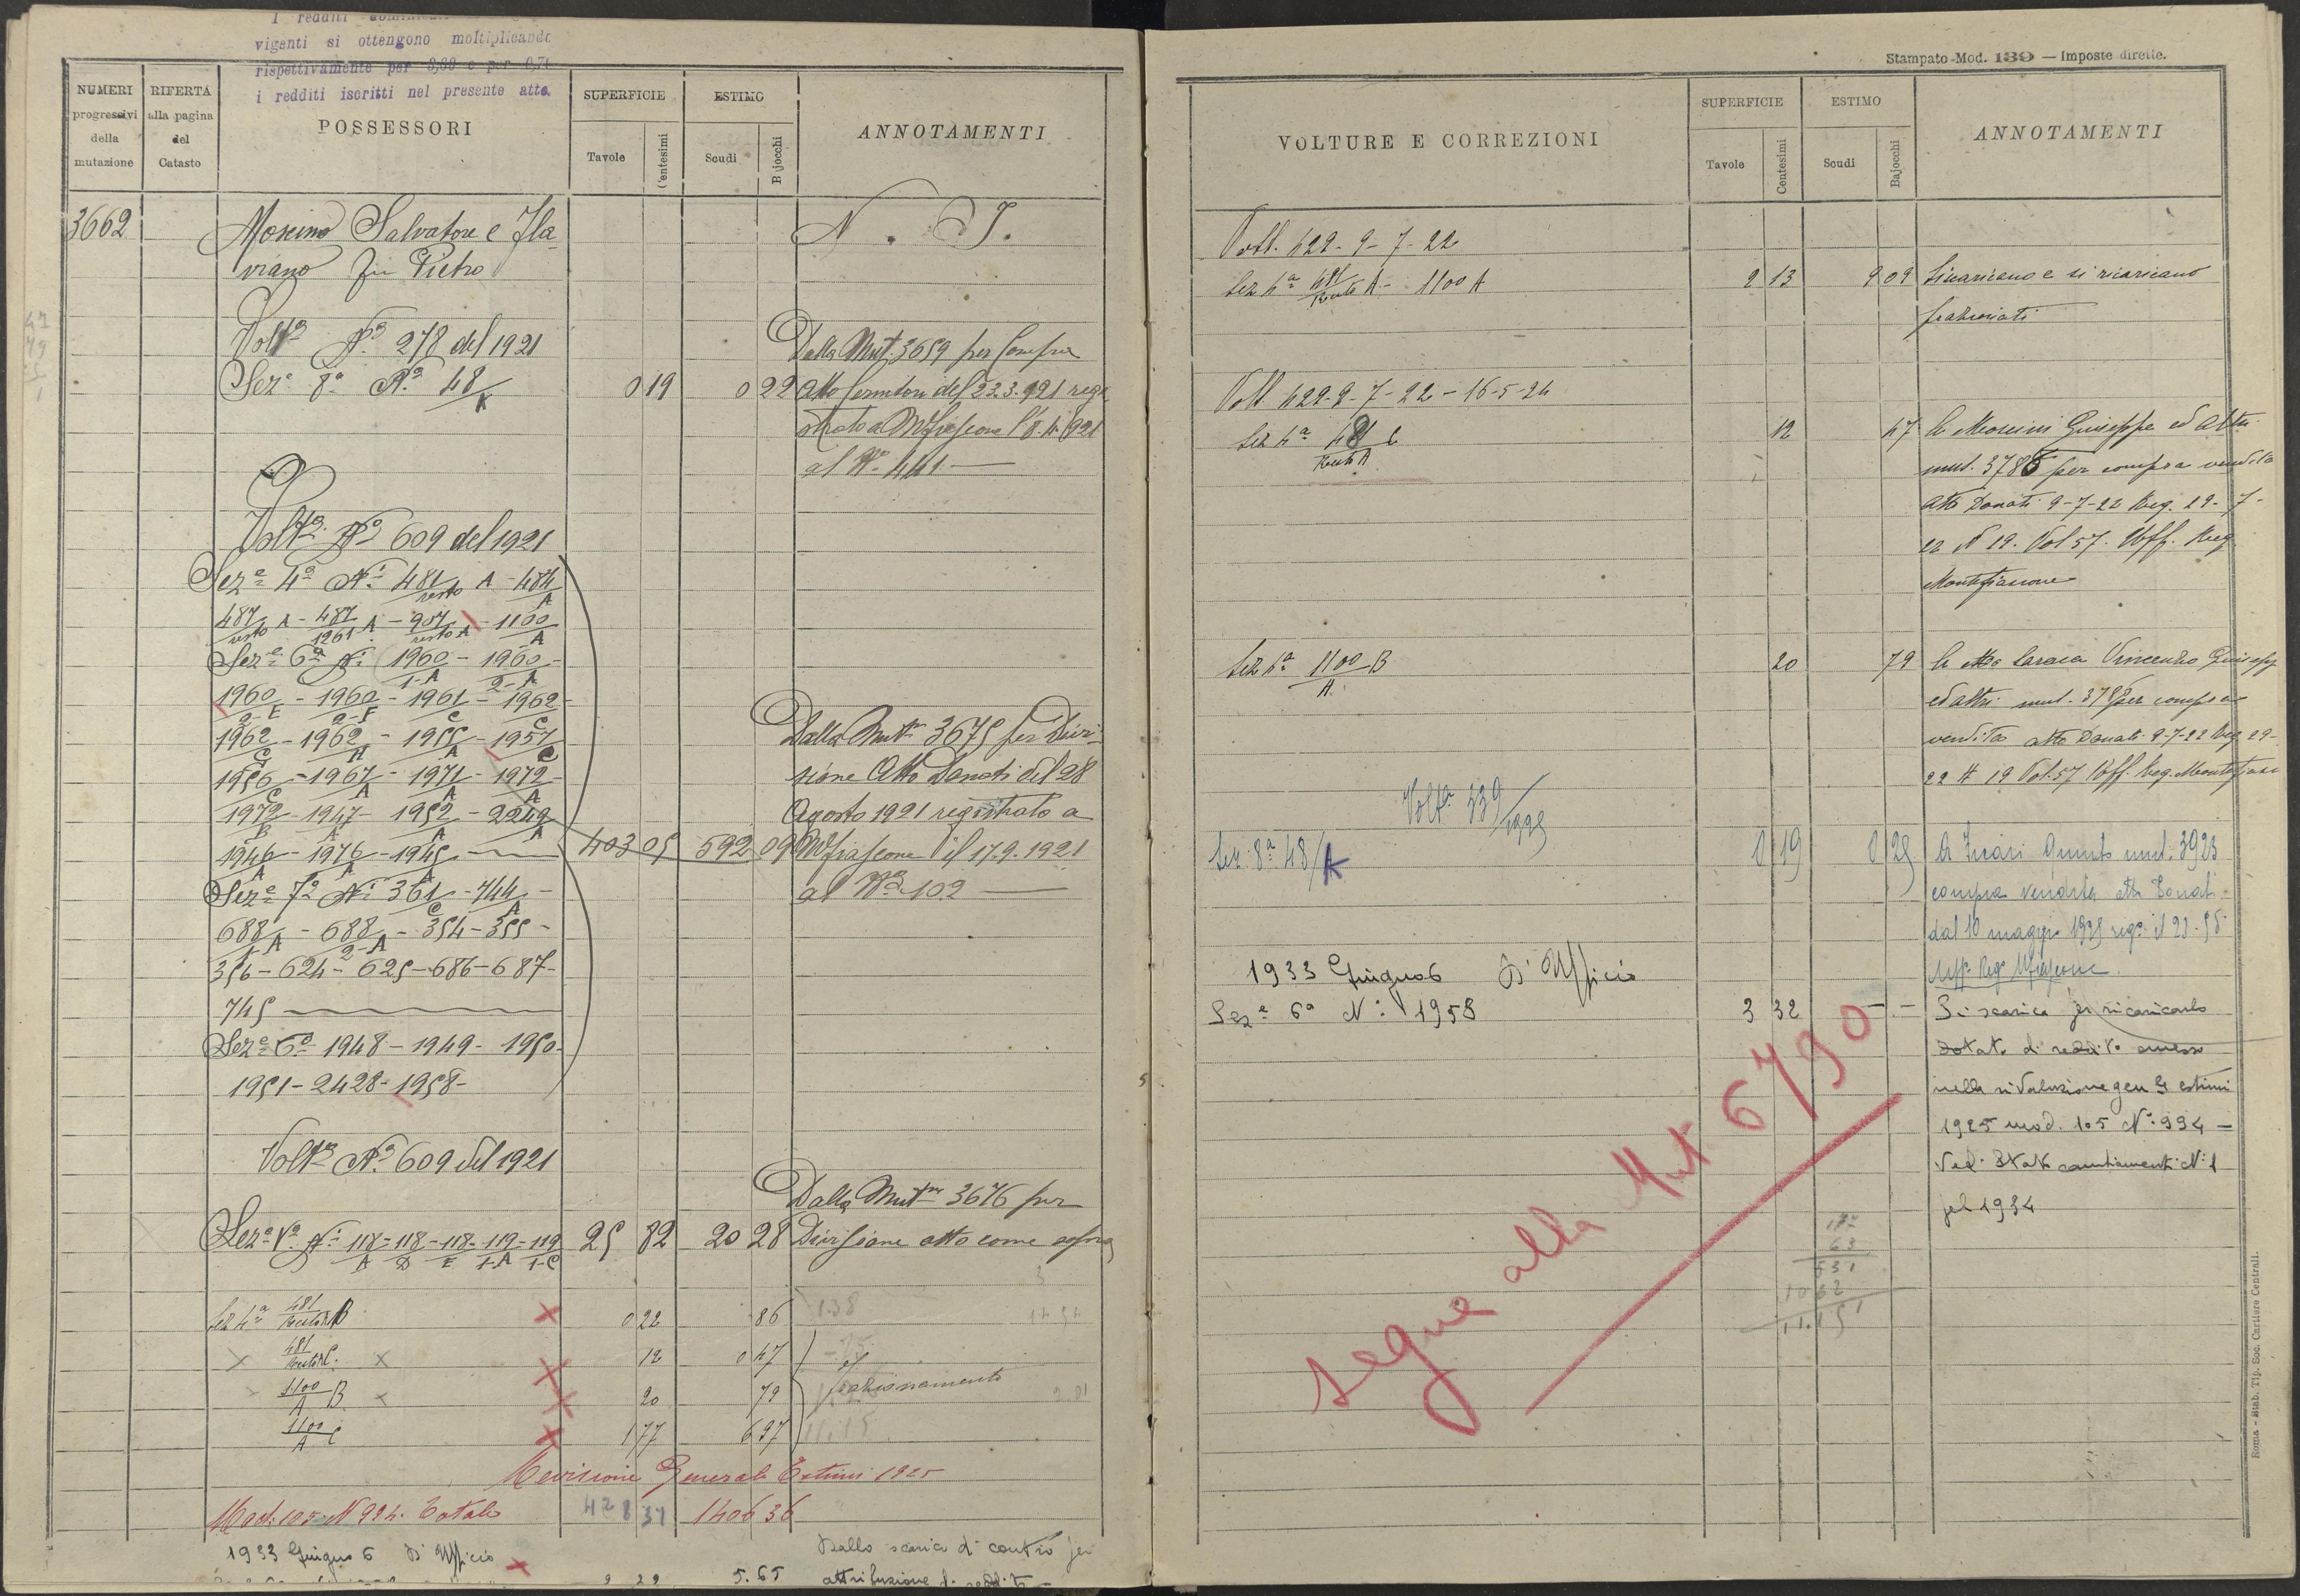 vigenti si ottengono moltiplicando
rispettivamente per 3,60 e per 0,70
i redditi iscritti nel presente atto.
NUMERI progressivi della mutazione
RIFERTA alla pagina del Catasto
POSSESSORI
SUPERFICIE
Tavole
Centesimi
ESTIMO
Scudi
Bajocchi
ANNOTAMENTI
3662
Salvatore e Fla
viano fu Pietro
N. I.
Volta No 278 del 1921
Dalla Mut. 3659 per Compra
Seze 8a No 48/K
0 19
0 22
Atto del 22.3.921 regi
strato a Mfiascone l'8.4.1921
al No 441
Volta No 609 del 1921
Seze 4a Ni 481/resto A - 484/A
487/resto A - 487/1261 A - 907/resto A - 1100/A
Seze 6a Ni 1960/1-A - 1960/2-A
1960/2-E - 1960/2-F - 1961/C - 1962/C
1962/G - 1962/H - 1955/A - 1957/C
1956/C - 1967/A - 1971/A - 1972/A
1972/B - 1947/A - 1952/A - 2249/A
1946/A - 1976/A - 1945
403 05
592 09
Dalla Mutne 3675 per Divi
sione Atto Donati del 28
Agosto 1921 registrato a
Mfiascone il 17.9.1921
al No 102
Seze 7a Ni 361/C - 744/A -
688/1-A - 688/2-A - 354 - 355 -
356 - 624 - 625 - 686 - 687 -
745
Seze 6a 1948 - 1949 - 1950 -
1951 - 2428 - 1958 -
Volta No 609 del 1921
Dalla Mutne 3676 per
Seze Va Ni 118/A - 118/D - 118/E - 119/1-A - 119/1-C
25 82
20 28
Divisione atto come sopra
Sez 4a 481/Resto A B
0 22
86
481/Resto A C.
12
0 47
1100/A B
20
79
frazionamento
1100/A C
1 77
6 97
Revisione Generale Estimi 1925
Mod. 105 N 994. Totale
428 37
1406 36
1933 Giugno 6 D'Ufficio
Dallo scarico di contro per
5.65
attribuzione di reddito
Stampato Mod. 139 — Imposte dirette.
VOLTURE E CORREZIONI
SUPERFICIE
Tavole
Centesimi
ESTIMO
Scudi
Bajocchi
ANNOTAMENTI
Volt. 422 - 9 - 7 - 22
Sez 4a 481/Resto A - 1100 A
2 13
9 09
Si scaricano e si ricaricano
frazionati
Volt. 422 - 9 - 7 - 22 - 16-5-24
Sez 4a 481/Resto A C
12
47
A Giuseppe ed Altri
mut. 3785 per compra vendita
atto Donati 9-7-22 Reg. 29-7-
22 N 19. Vol 57. Uff. Reg
Montefiascone
Sez 4a 1100/A B
20
79
A Saraca Vincenzo Giuseppe
ed altri mut. per compra
vendita atto Donati 9-7-22 Reg 29-
22 N 19 Vol.57 Uff. Reg. Montefiasc
Volta 339/1925
Sez. 8a 48/K
0 19
0 25
A Quinto mut. 3923
compra vendita atto Donati
dal 10 maggio
Uff. Rego Mfiascone
1933 Giugno 6 D'Ufficio
Seze 6a N: 1958
3 32
- -
Si scarica per ricaricarlo
dotato di reddito omesso
nella rivalutazione gen le estimi
1925 mod. 105 N: 994 -
Ved. Stato cambiamenti N: 1
pel 1934
Segue alla Mut 6790
63
531
1062
Roma - Stab. Tip. Soc. Cartiere Centrali.